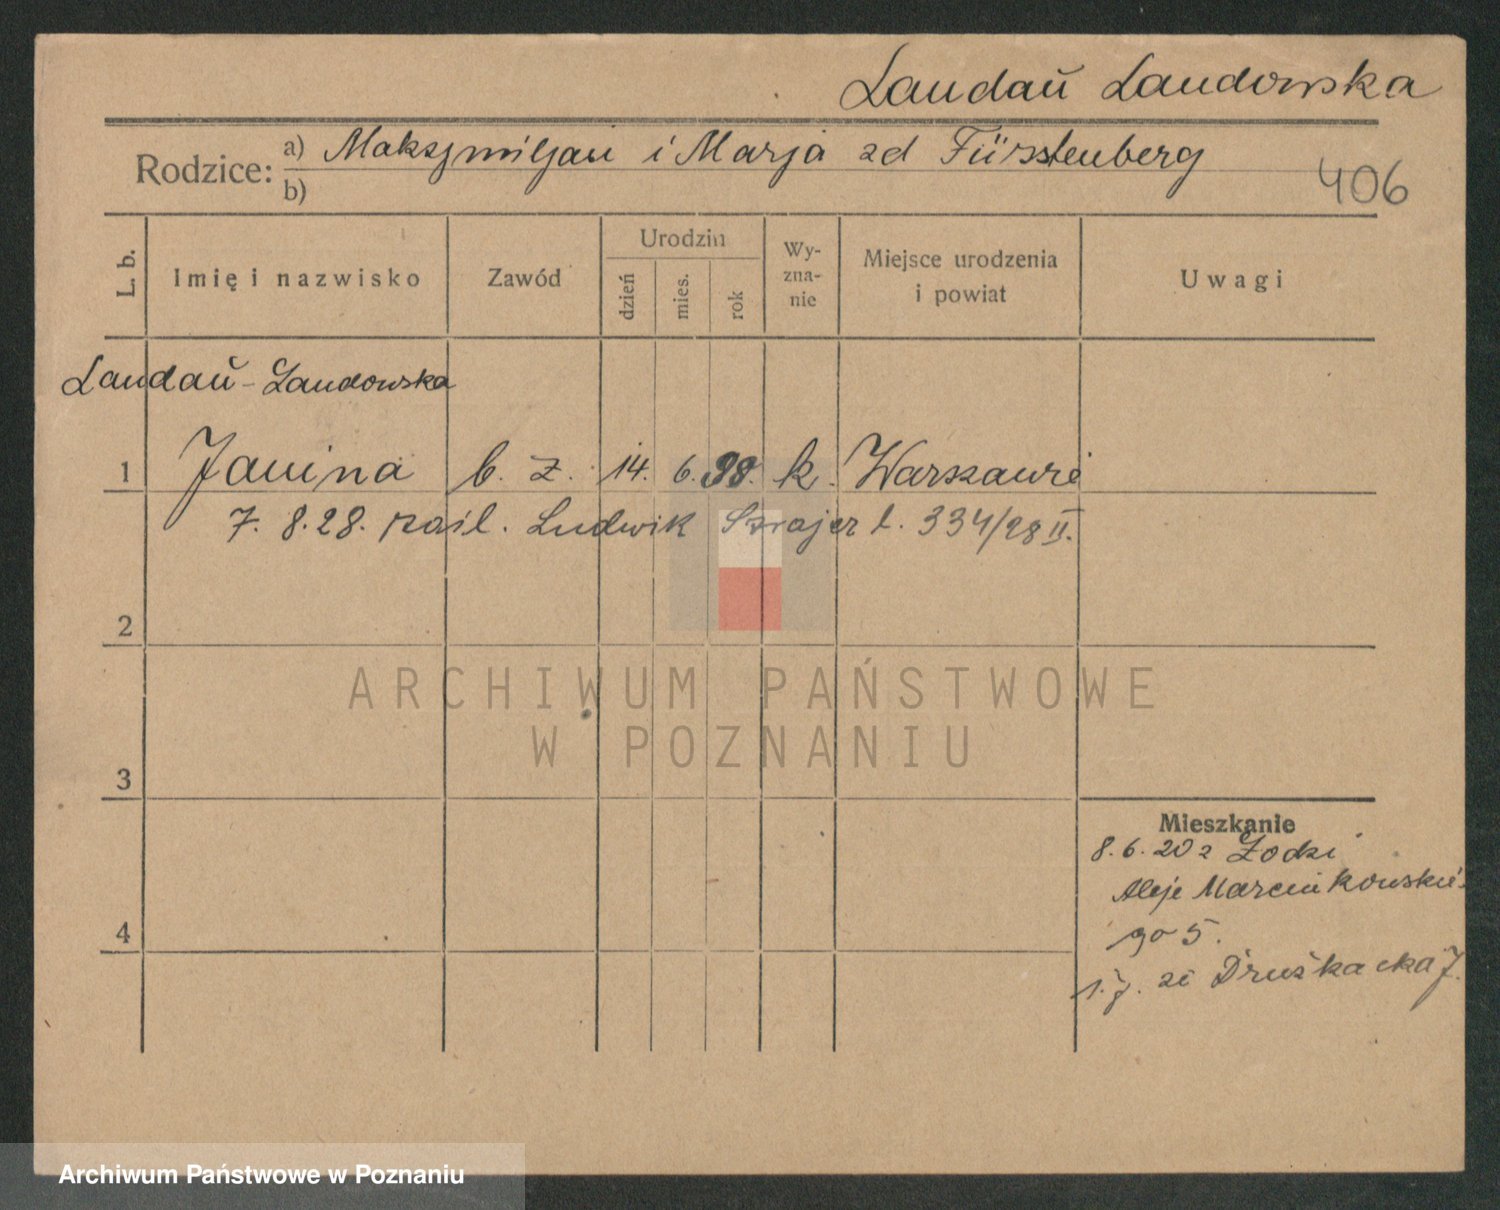 Landaŭ Landowska
Rodzice: a) Maksymiljan i Marja zd Fürstenberg
b)
406
L. b. Imię i nazwisko Zawód Urodzin dzień mies. rok Wy-zna-nie Miejsce urodzenia i powiat Uwagi
Landaŭ-Landowska
1 Janina b. z. 14. 6. 98. k. Warszawie
7. 8. 28. zaśl. Ludwik Szrajer l. 334/28 II.
2
ARCHIWUM PAŃSTWOWE
W POZNANIU
3
Mieszkanie
8. 6. 20 z Łodzi
Aleje Marcinkowskie-
go 5.
4
Archiwum Państwowe w Poznaniu